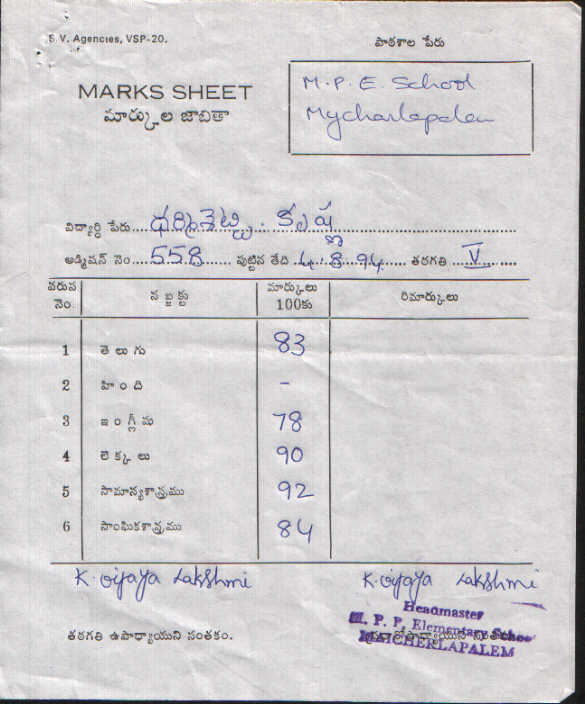 S.V. Agencies, VSP-20.
పాఠశాల పేరు
MARKS SHEET
మార్కుల జాబితా
M.P.E. School
Mycharlapalem
విద్యార్థి పేరు.... ధర్మిశెట్టి. కృష్ణ
అడ్మిషన్ నెం....558...... పుట్టిన తేది.4.8.94.... తరగతి ...V......
వరుస నెం. సబ్జక్టు మార్కులు 100కు రిమార్కులు
1 తెలుగు 83
2 హింది -
3 ఇంగ్లీషు 78
4 లెక్కలు 90
5 సామాన్యశాస్త్రము 92
6 సాంఘికశాస్త్రము 84
K. Vijaya Lakshmi K. Vijaya Lakshmi
Headmaster
తరగతి ఉపాధ్యాయుని సంతకం.
M. P. P. Elementary School
MAICHERLAPALEM